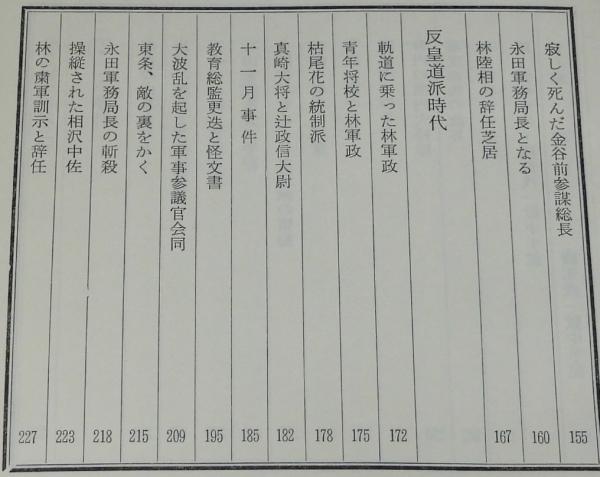 寂しく死んだ金谷前参謀総長 155
永田軍務局長となる 160
林陸相の辞任芝居 167
反皇道派時代
軌道に乗った林軍政 172
青年将校と林軍政 175
枯尾花の統制派 178
真崎大将と辻政信大尉 182
十一月事件 185
教育総監更迭と怪文書 195
大波乱を起した軍事参議官会同 209
東条、敵の裏をかく 215
永田軍務局長の斬殺 218
操縦された相沢中佐 223
林の粛軍訓示と辞任 227